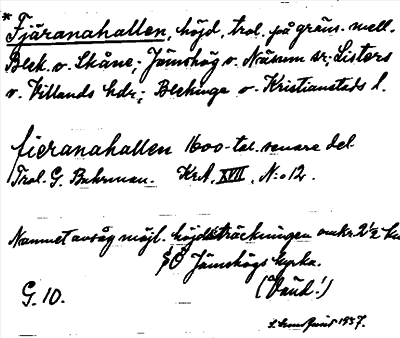 * Fjäranahallen, höjd, trol. på gräns. mell.
Blek. o. Skåne; Jämshög o. Näsum sr; Listers
o. Villands hdr; Blekinge o. Kristianstads l.
fieranahallen 1600-tal. senare del
Trol. G. Buhrman. KrA, XVII, N:o 12.
Namnet avsåg möjl. höjdsträckningen omkr. 2½ km
SÖ Jämshögs kyrka.
G. 10.
1937.